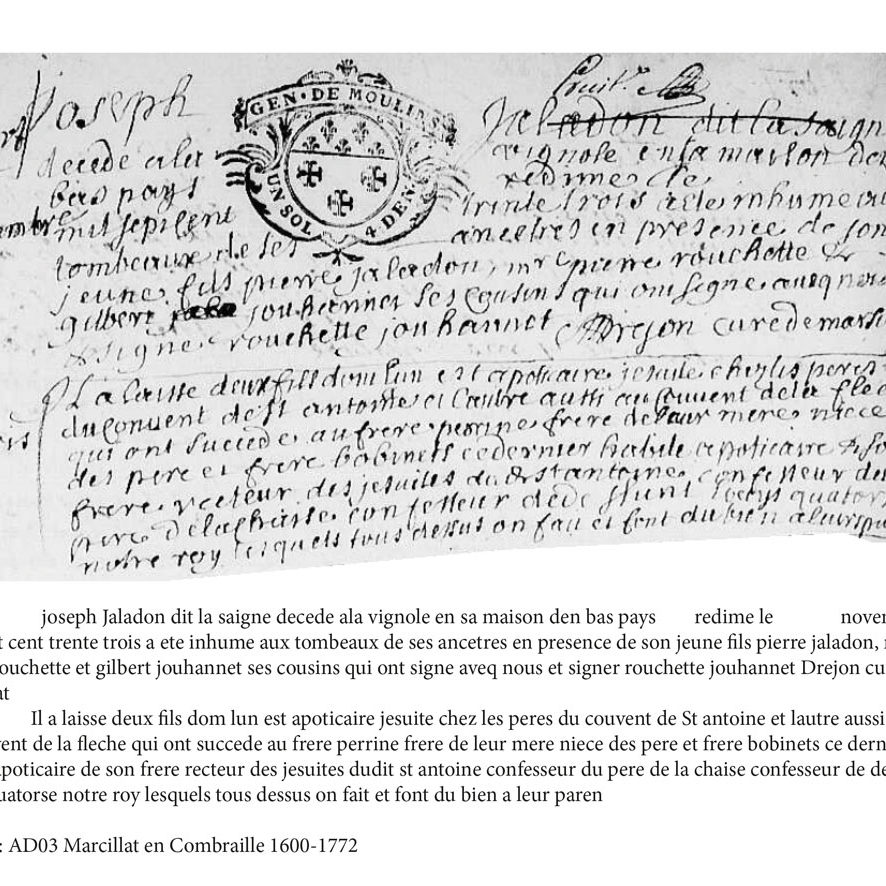 joseph
GEN · DE MOULINS
UN SOL 4 DEN
Jaladon dit la saign
decede ala vignole en sa maison den
bas pays redime le
mil sept cent trente trois a ete inhume au
tombeaux de ses ancetres en presence de son
jeune fils pierre jaladon, mre pierre rouchette &
gilbert jouhannet ses cousins qui ont signe aveq nous
& signe rouchette jouhannet Drejon cure de marsi
Il a laisse deux fils dom lun est apoticaire jesuite chez les peres
du couvent de st antoine et lautre aussi au couvent de la flec
qui ont succede au frere perrine frere de leur mere niece
des pere et frere bobinets ce dernier habile apoticaire & so
frere recteur des jesuites du st antoine confesseur du
pere de la chaise confesseur de quator
notre roy lesquels tous dessus on fait et font du bien a leurs pa
joseph Jaladon dit la saigne decede ala vignole en sa maison den bas pays redime le nover
t cent trente trois a ete inhume aux tombeaux de ses ancetres en presence de son jeune fils pierre jaladon,
ouchette et gilbert jouhannet ses cousins qui ont signe aveq nous et signer rouchette jouhannet Drejon cu
at
Il a laisse deux fils dom lun est apoticaire jesuite chez les peres du couvent de St antoine et lautre aussi
ent de la fleche qui ont succede au frere perrine frere de leur mere niece des pere et frere bobinets ce dern
apoticaire de son frere recteur des jesuites dudit st antoine confesseur du pere de la chaise confesseur de de
uatorse notre roy lesquels tous dessus on fait et font du bien a leur paren
: AD03 Marcillat en Combraille 1600-1772